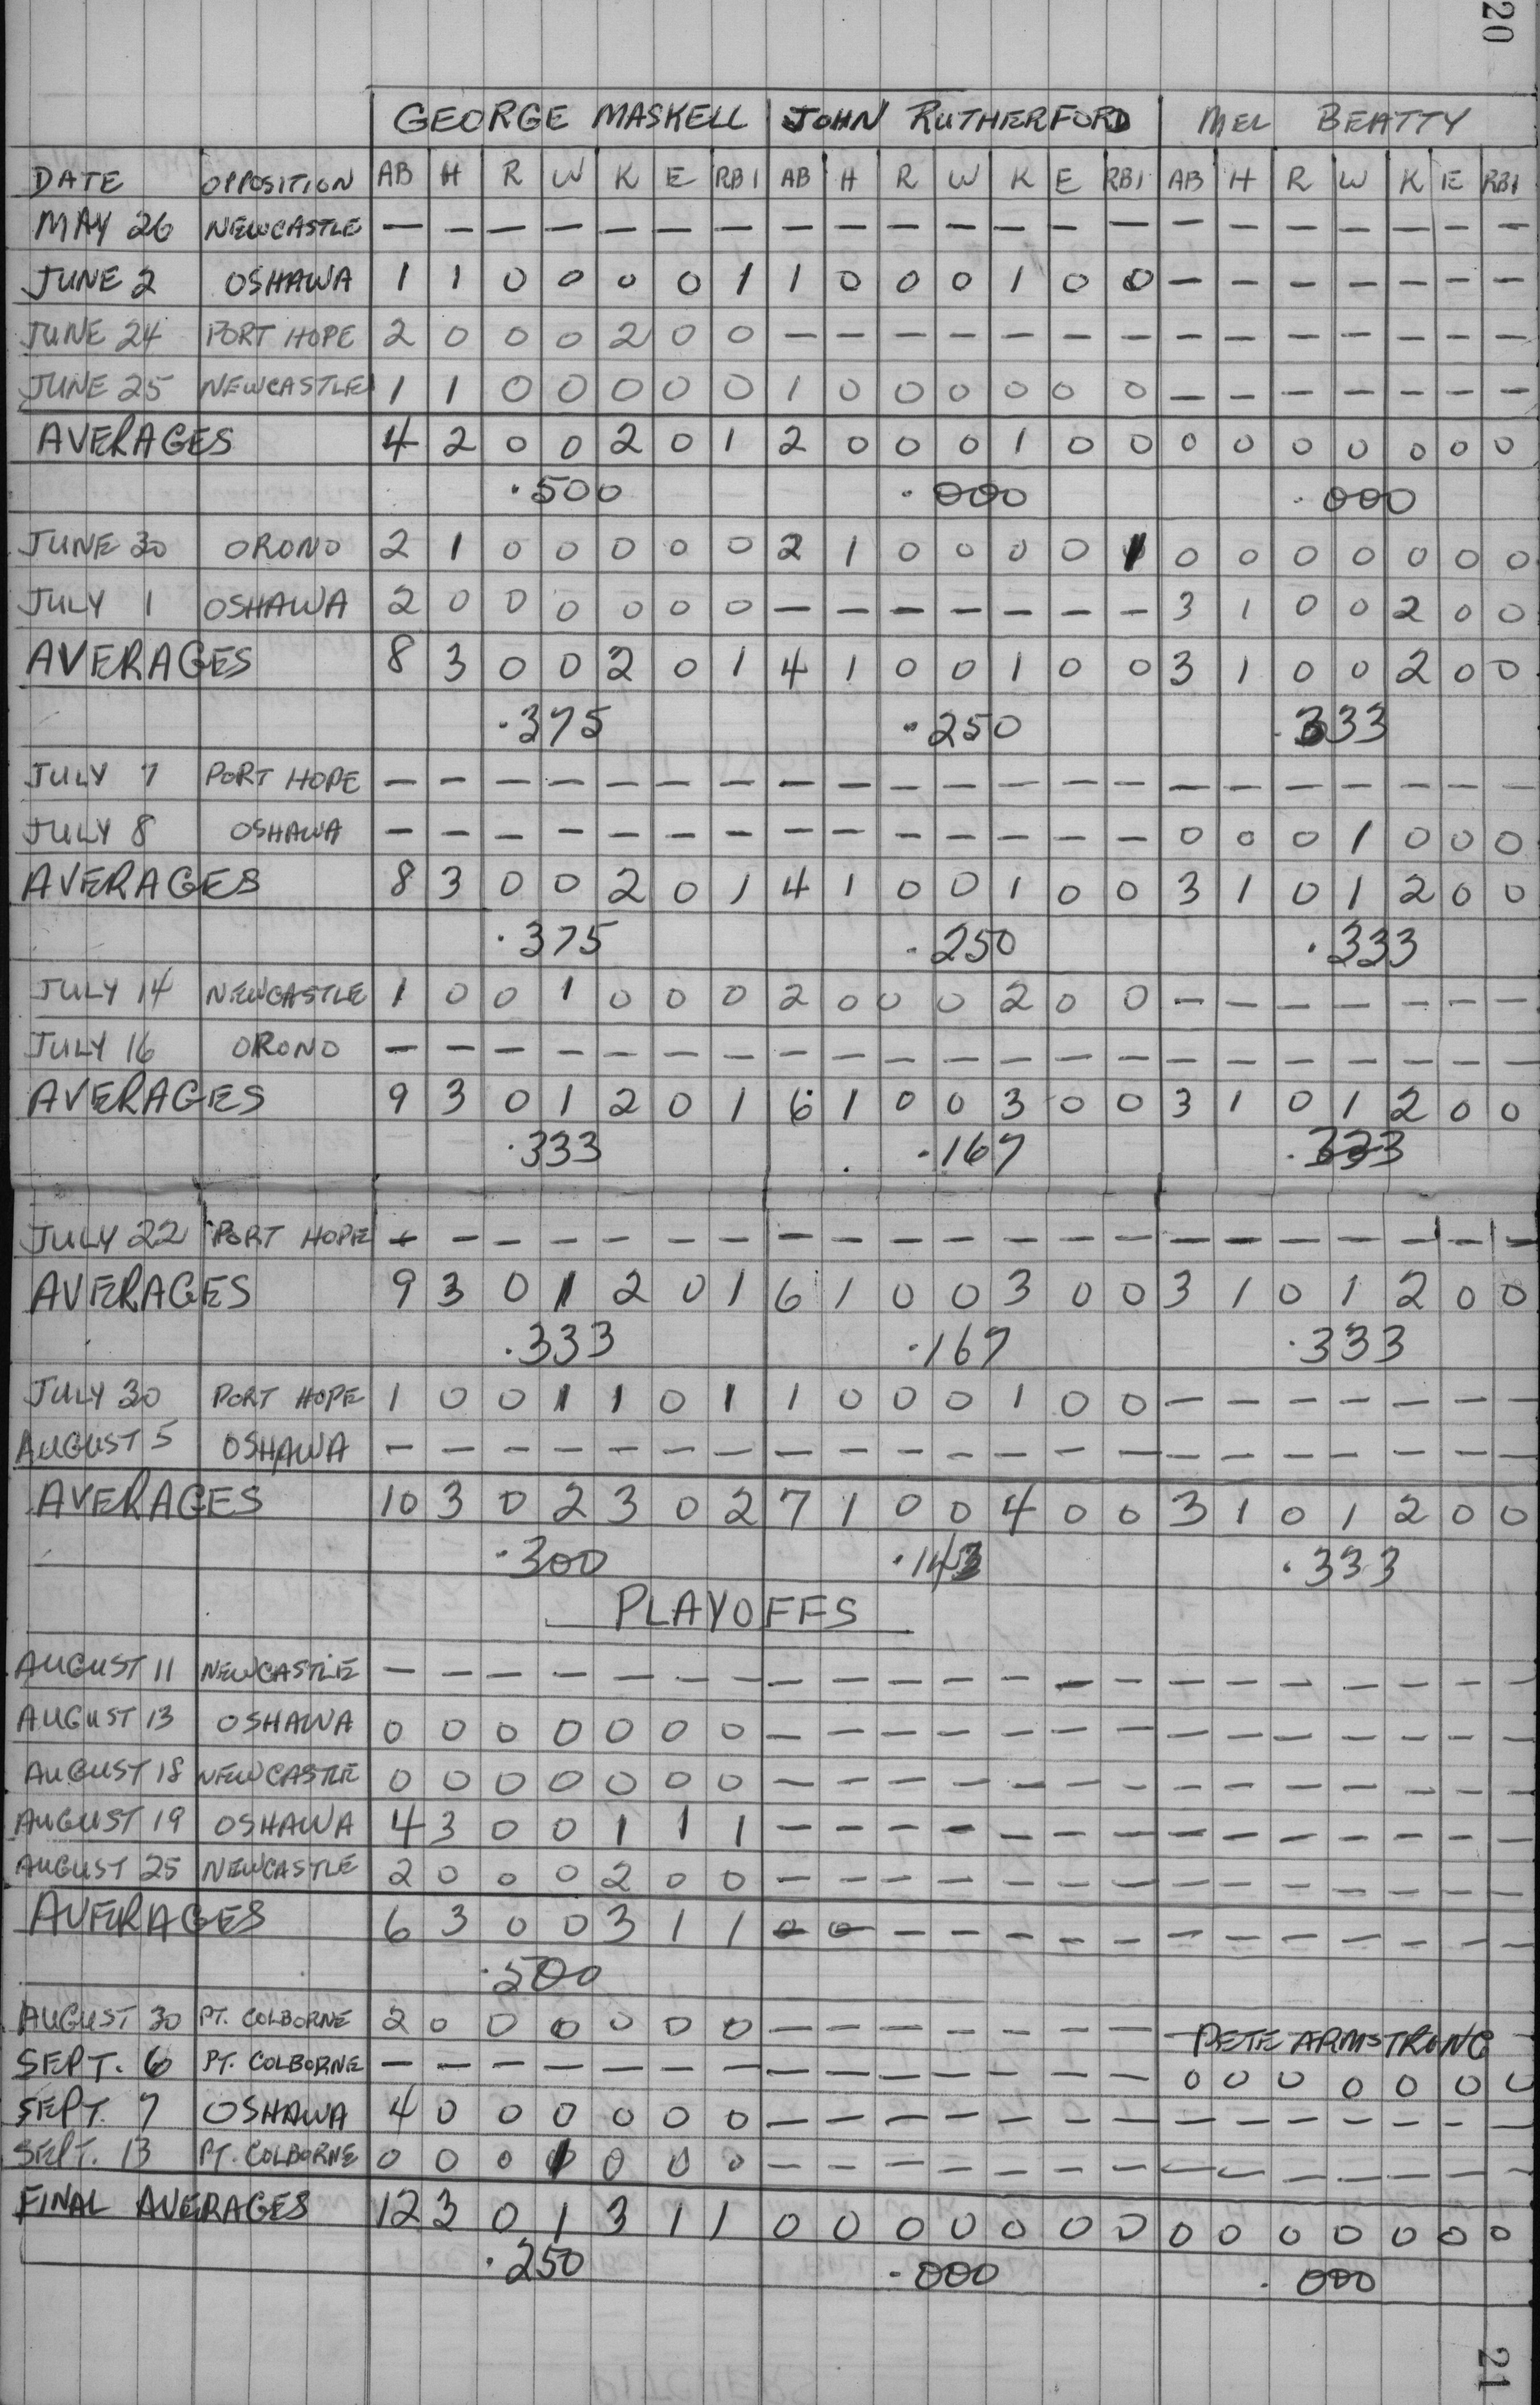 20
GEORGE MASKELL JOHN RUTHERFORD MEL BEATTY
DATE OPPOSITION AB H R W K E RBI AB H R W K E RBI AB H R W K E RBI
MAY 26 NEWCASTLE — — — — — — — — — — — — — — — — — — — — —
JUNE 2 OSHAWA 1 1 0 0 0 0 1 1 0 0 0 1 0 0 — — — — — — —
JUNE 24 PORT HOPE 2 0 0 0 2 0 0 — — — — — — — — — — — — — —
JUNE 25 NEWCASTLE 1 1 0 0 0 0 0 1 0 0 0 0 0 0 — — — — — — —
AVERAGES 4 2 0 0 2 0 1 2 0 0 0 1 0 0 0 0 0 0 0 0 0
.500 .000 .000
JUNE 30 ORONO 2 1 0 0 0 0 0 2 1 0 0 0 0 1 0 0 0 0 0 0 0
JULY 1 OSHAWA 2 0 0 0 0 0 0 — — — — — — — 3 1 0 0 2 0 0
AVERAGES 8 3 0 0 2 0 1 4 1 0 0 1 0 0 3 1 0 0 2 0 0
.375 .250 .333
JULY 7 PORT HOPE — — — — — — — — — — — — — — — — — — — — —
JULY 8 OSHAWA — — — — — — — — — — — — — — 0 0 0 1 0 0 0
AVERAGES 8 3 0 0 2 0 1 4 1 0 0 1 0 0 3 1 0 1 2 0 0
.375 .250 .333
JULY 14 NEWCASTLE 1 0 0 1 0 0 0 2 0 0 0 2 0 0 — — — — — — —
JULY 16 ORONO — — — — — — — — — — — — — — — — — — — — —
AVERAGES 9 3 0 1 2 0 1 6 1 0 0 3 0 0 3 1 0 1 2 0 0
.333 .167 .333
JULY 22 PORT HOPE — — — — — — — — — — — — — — — — — — — — —
AVERAGES 9 3 0 1 2 0 1 6 1 0 0 3 0 0 3 1 0 1 2 0 0
.333 .167 .333
JULY 30 PORT HOPE 1 0 0 1 1 0 1 1 0 0 0 1 0 0 — — — — — — —
AUGUST 5 OSHAWA — — — — — — — — — — — — — — — — — — — — —
AVERAGES 10 3 0 2 3 0 2 7 1 0 0 4 0 0 3 1 0 1 2 0 0
.300 .143 .333
PLAYOFFS
AUGUST 11 NEWCASTLE — — — — — — — — — — — — — — — — — — — — —
AUGUST 13 OSHAWA 0 0 0 0 0 0 0 — — — — — — — — — — — — — —
AUGUST 18 NEWCASTLE 0 0 0 0 0 0 0 — — — — — — — — — — — — — —
AUGUST 19 OSHAWA 4 3 0 0 1 1 1 — — — — — — — — — — — — — —
AUGUST 25 NEWCASTLE 2 0 0 0 2 0 0 — — — — — — — — — — — — — —
AVERAGES 6 3 0 0 3 1 1 0 0 — — — — — — — — — — — —
.500
AUGUST 30 PT. COLBORNE 2 0 0 0 0 0 0 — — — — — — — PETE ARMSTRONG
SEPT. 6 PT. COLBORNE — — — — — — — — — — — — — — 0 0 0 0 0 0 0
SEPT. 7 OSHAWA 4 0 0 0 0 0 0 — — — — — — — — — — — — — —
SEPT. 13 PT. COLBORNE 0 0 0 1 0 0 0 — — — — — — — — — — — — — —
FINAL AVERAGES 12 3 0 1 3 1 1 0 0 0 0 0 0 0 0 0 0 0 0 0 0
.250 .000 .000
21